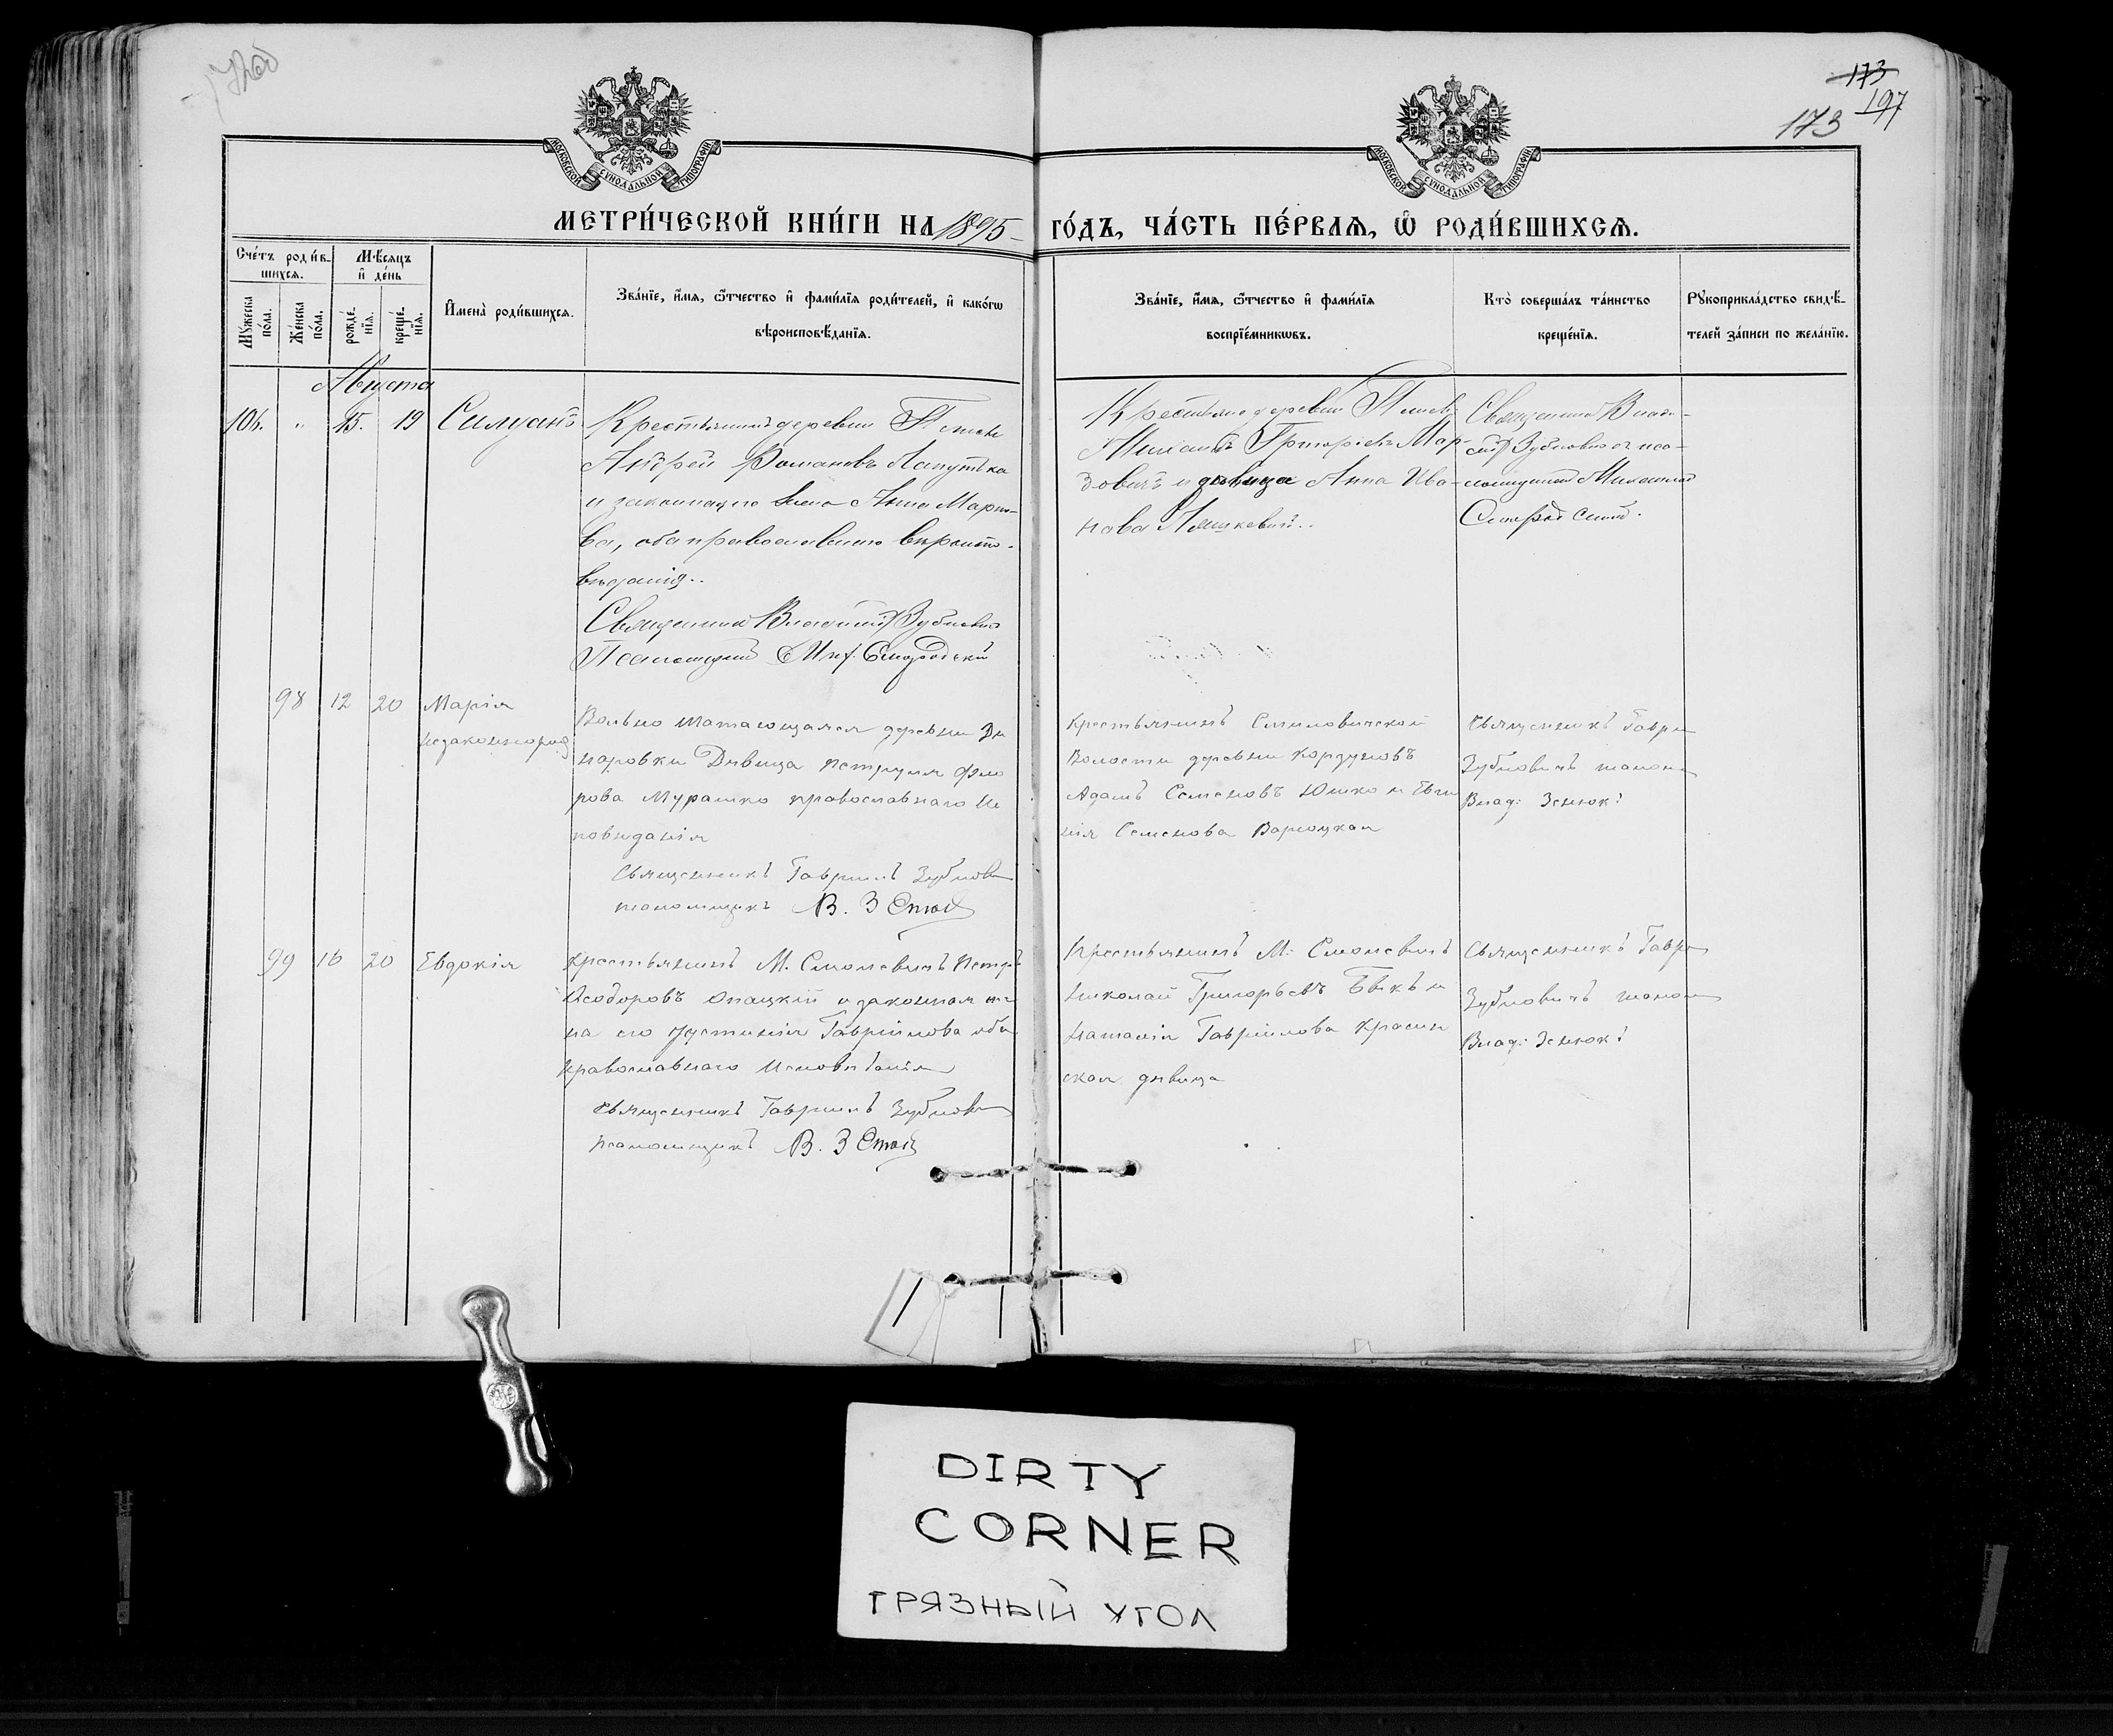 173
197
173
МОСКОВСКОЙ СѴНОДАЛЬНОЙ ТИПОГРАФІИ
МОСКОВСКОЙ СѴНОДАЛЬНОЙ ТИПОГРАФІИ
МЕТРИ́ЧЕСКОЙ КНИ́ГИ НА 1895 ГО́ДЪ, ЧА́СТЬ ПЕ́РВАЯ, Ѿ РОДИ́ВШИХСЯ.
Сче́тъ роди́в-
шихся.
Мѣсяцъ
и де́нь
Мꙋжеска по́ла.
Же́нска по́ла.
рожде́-нїя.
креще́-нїя.
Имена̀ роди́вшихся.
Зва́нїе, и́мя, ѻ҆́тчество и фами́лїя роди́телей, и како́гѡ
вѣроисповѣданїя.
Зва́нїе, и́мя, ѻ҆́тчество и фами́лїя
воспрїе́мникѡвъ.
Кто̀ соверша́лъ та́инство
креще́нїя.
Рꙋкоприкла́дство свидѣ́-
телей за́писи по жела́нїю.
Августа
106. " 15. 19 Силуанъ
Крестьянинъ деревни
Андрей Романовъ Лапутька
и законная его жена Анна Марко-
ва, оба православнаго вѣроиспо-
вѣданія..
Священникъ Владиміръ Зубковичъ
Псаломщикъ
Крестьяне деревни
Михаилъ Григорьевъ Мар-
зовичъ и дѣвица Анна Ива-
нова Ляшкевичъ..
Священникъ Влади-
міръ Зубковичъ съ пса-
ломщикомъ Михаиломъ
98 12 20 Марія
незаконнорожд
Вольно шатающаяся деревни
наровки Дѣвица Петруня Фло
рова Мурашко православнаго Ис
повѣданія
Священникъ Гавріилъ Зубкови
псаломщикъ В. Зенюкъ
Крестьянинъ Смиловичской
Волости деревни Кордуновъ
Адамъ Семеновъ Юшко и Евге
нія Семенова Варноцкая
Священникъ Гаври
Зубковичъ псалом
Влад: Зенюкъ
99 16 20 Евдокія
Крестьянинъ М. Смолевичъ Петръ
Ѳеодоровъ Опацкій и законная же
на его Устинія Гавріилова оба
православнаго Исповѣданія
Священникъ Гавріилъ Зубкови
псаломщикъ В. Зенюкъ
Крестьянинъ М. Смолевичъ
Николай Григорьевъ Быкъ и
Наталія Гавріилова Красин
ская дѣвица
Священникъ Гаврі
Зубковичъ псалом
Влад: Зенюкъ
DIRTY
CORNER
ГРЯЗНЫЙ УГОЛ